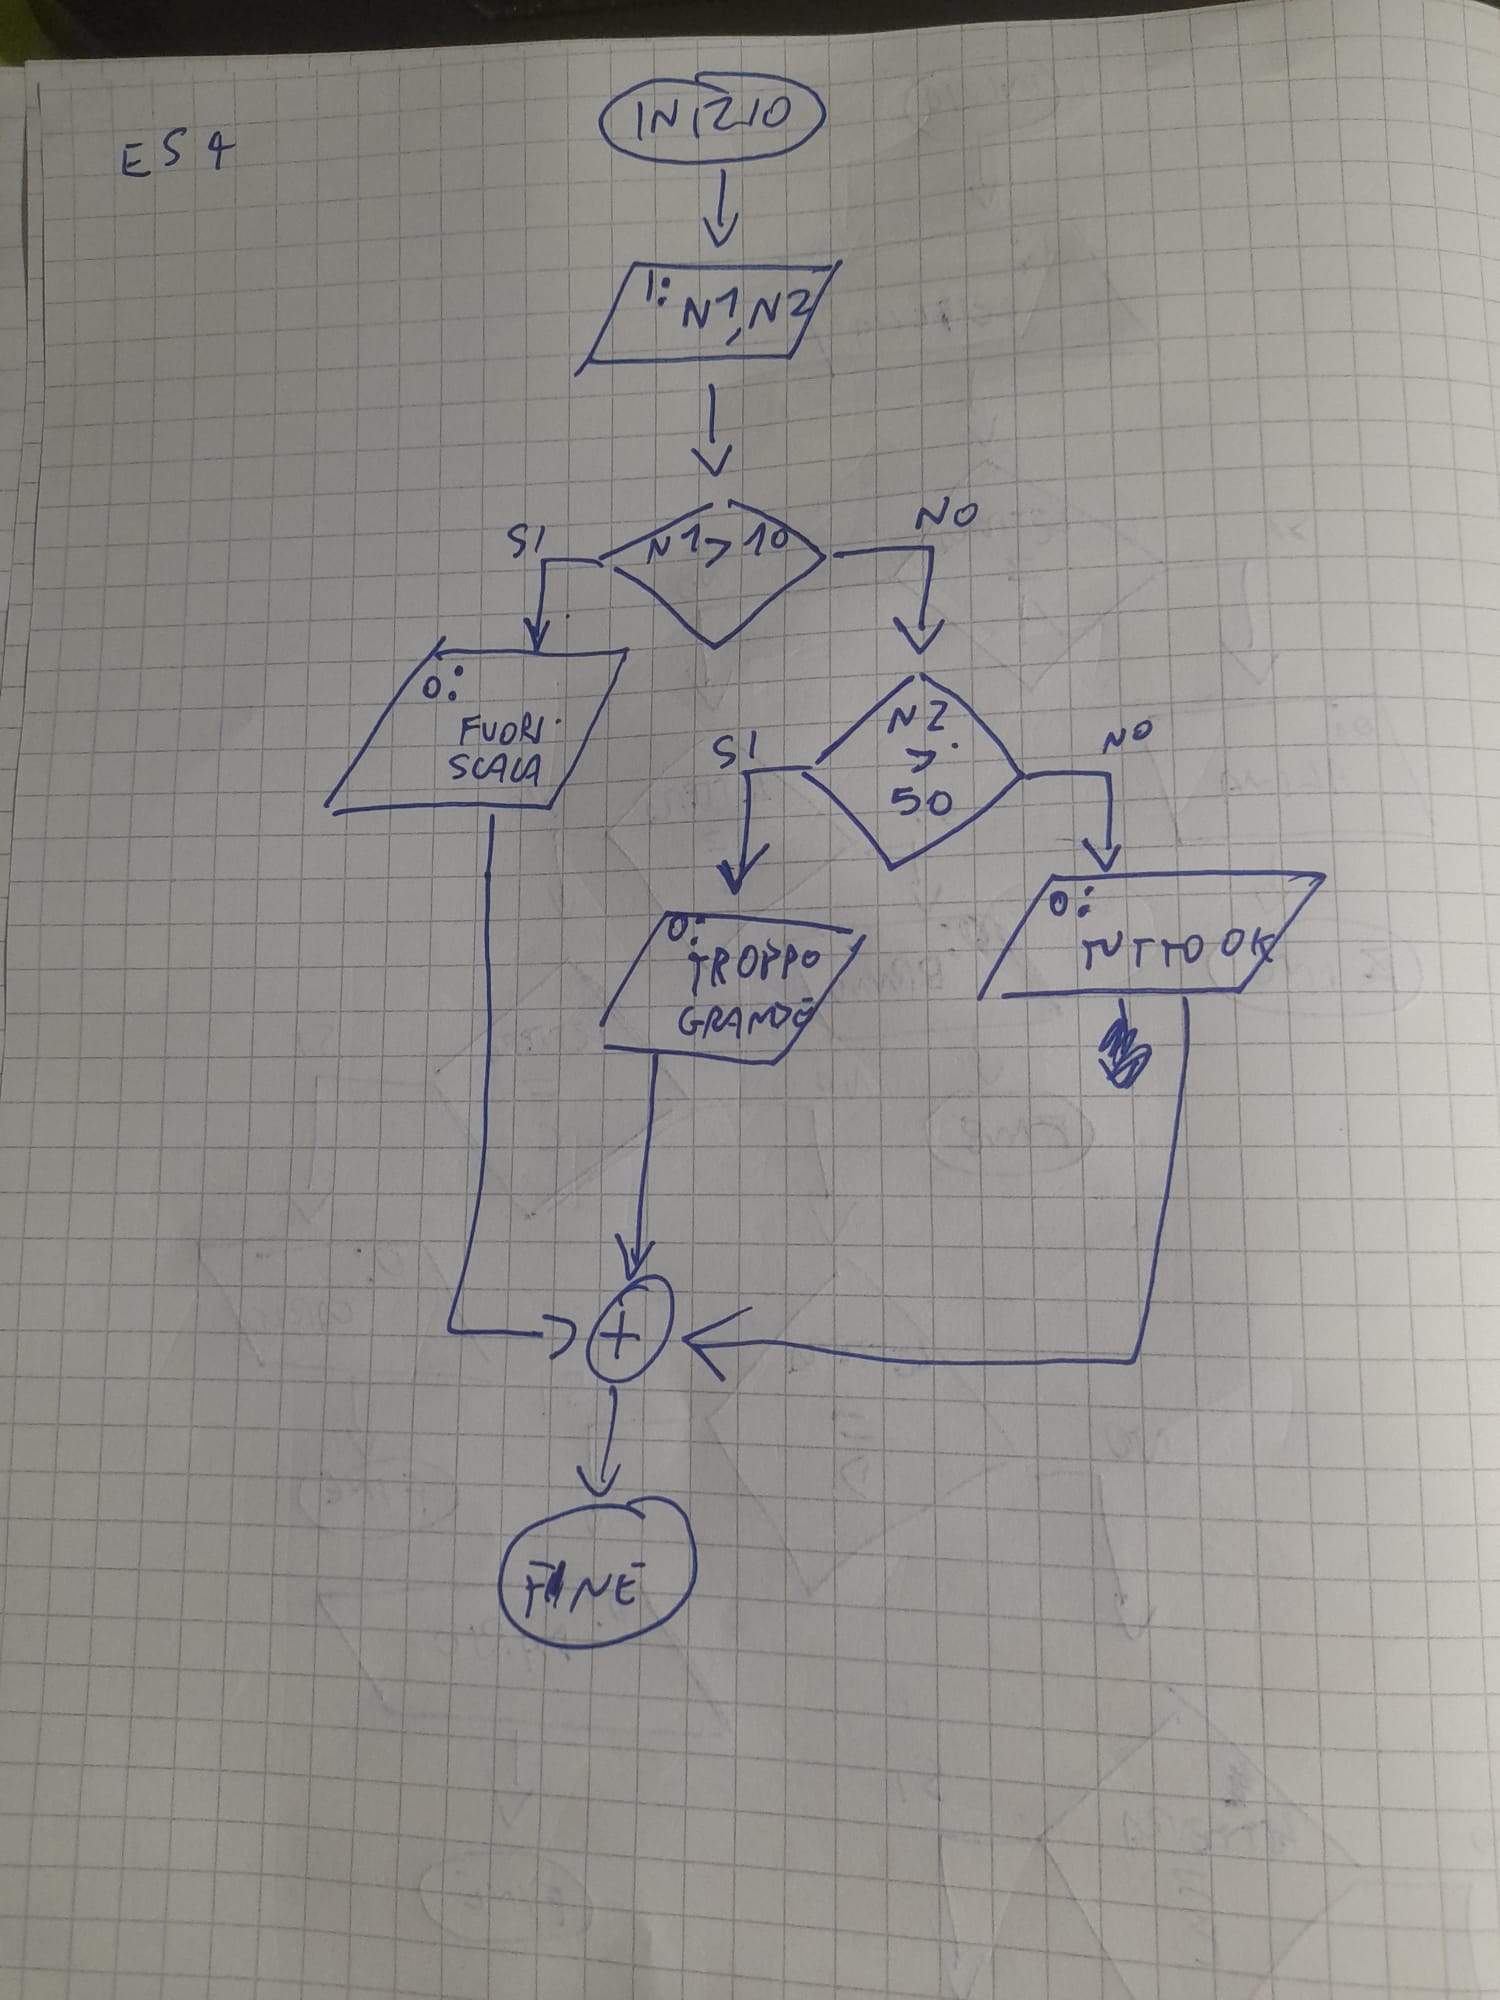 ES 4
INIZIO
I: N1, N2
N1 > 10
SI
NO
O:
FUORI
SCALA
N2
>
50
SI
NO
O:
TROPPO
GRANDE
O:
TUTTO OK
+
FINE